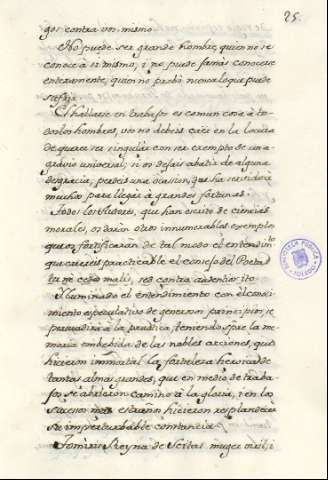 25.
gos contra vos mismo.
No puede ser grande hombre, quien no se
conoce à si mismo, i no puede jamás conocerse
enteramente, quien no probò nunca lo que puede
sufrir.
El hallarse en trabajos es comun cosa à to-
dos los hombres, vos no debeis caer en la locura
de querer ser singular con ser exempto de un a-
gravio universal; si os dejais abatir de alguna
desgracia, perdeis una ocassion, que ha servido à
muchos para llegar à grandes fortunas.
Todos los Autores, que han escrito de ciencias
morales, os daràn otros innumerables exemplos
que os fortificaràn de tal modo el entendimto
que creereis practicable el consejo del Poeta
tu ne cede malis, sed contra audentior ito
Iluminado el entendimiento con el conoci-
miento especulativo de generosos principios, se
persuadirà à la practica, teniendo spre la me-
moria embebida de las nobles acciones, que
hicieron immortal la fortaleza heroica de
tantas almas grandes, que en medio de traba-
jos se abrieron camino à la gloria, i en los
sucessos mas estraños hicieron resplandecer
su imperturbable constancia.
Tomiris Reyna de Scitas muger viril, i
BIBLIOTECA PUBLICA
TOLEDO